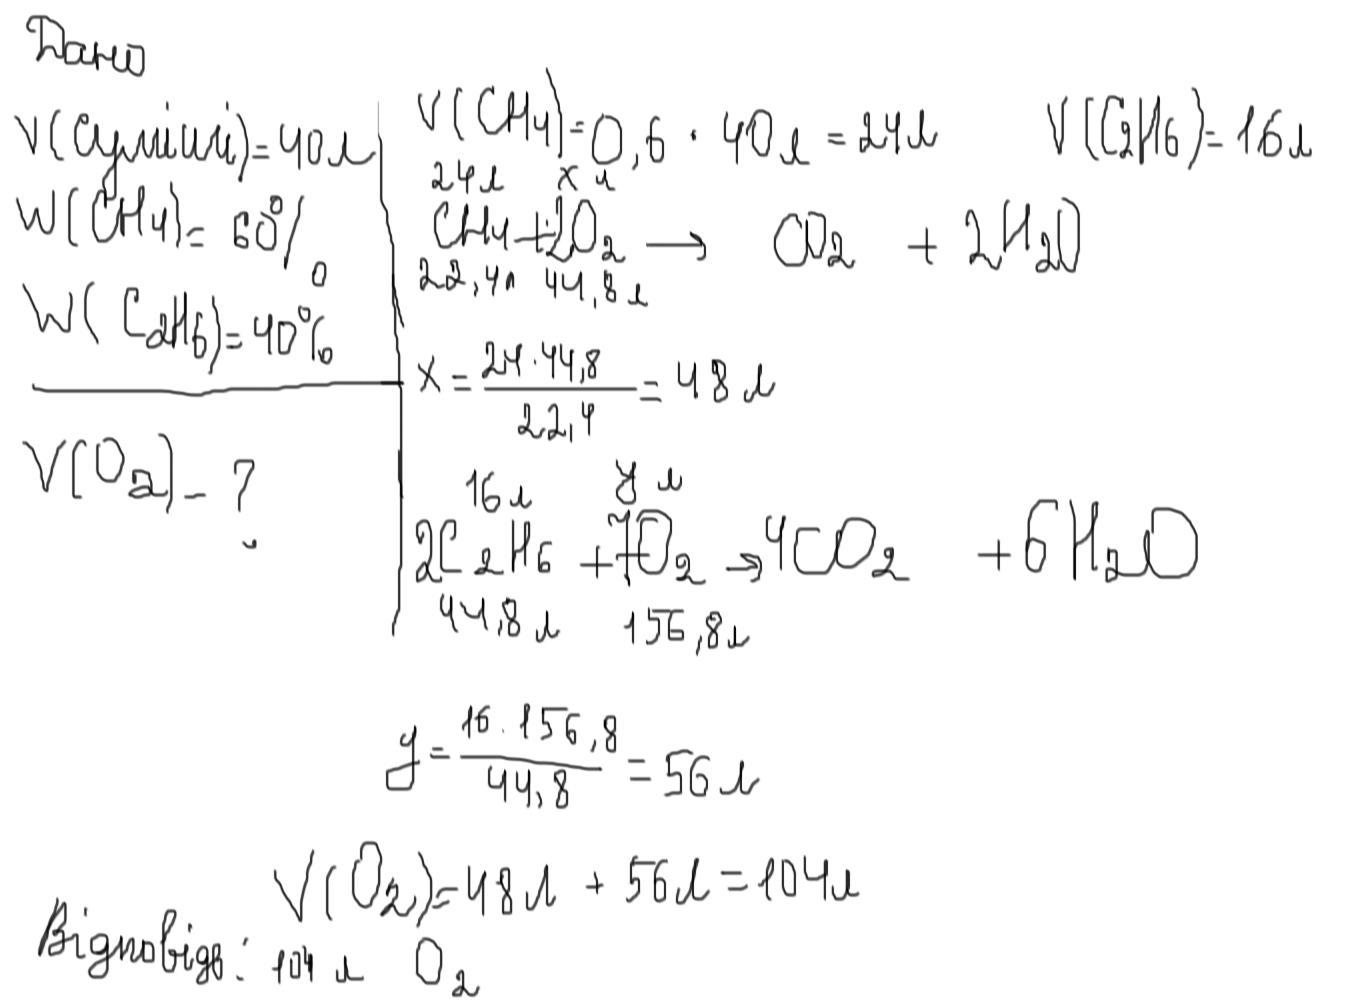 Дано
V(суміші)=40л
W(CH4)= 60%
W(C2H6)=40%
V(O2)-?
V(CH4)=0,6 · 40л = 24л V(C2H6)=16л
24л x л
CH4+2O2 → CO2 + 2H2O
22,4л 44,8л
x = 24·44,8 / 22,4 = 48 л
16л y л
2C2H6 +7O2 → 4CO2 +6H2O
44,8л 156,8л
y = 16·156,8 / 44,8 = 56л
V(O2)=48л + 56л = 104л
Відповідь: 104 л O2